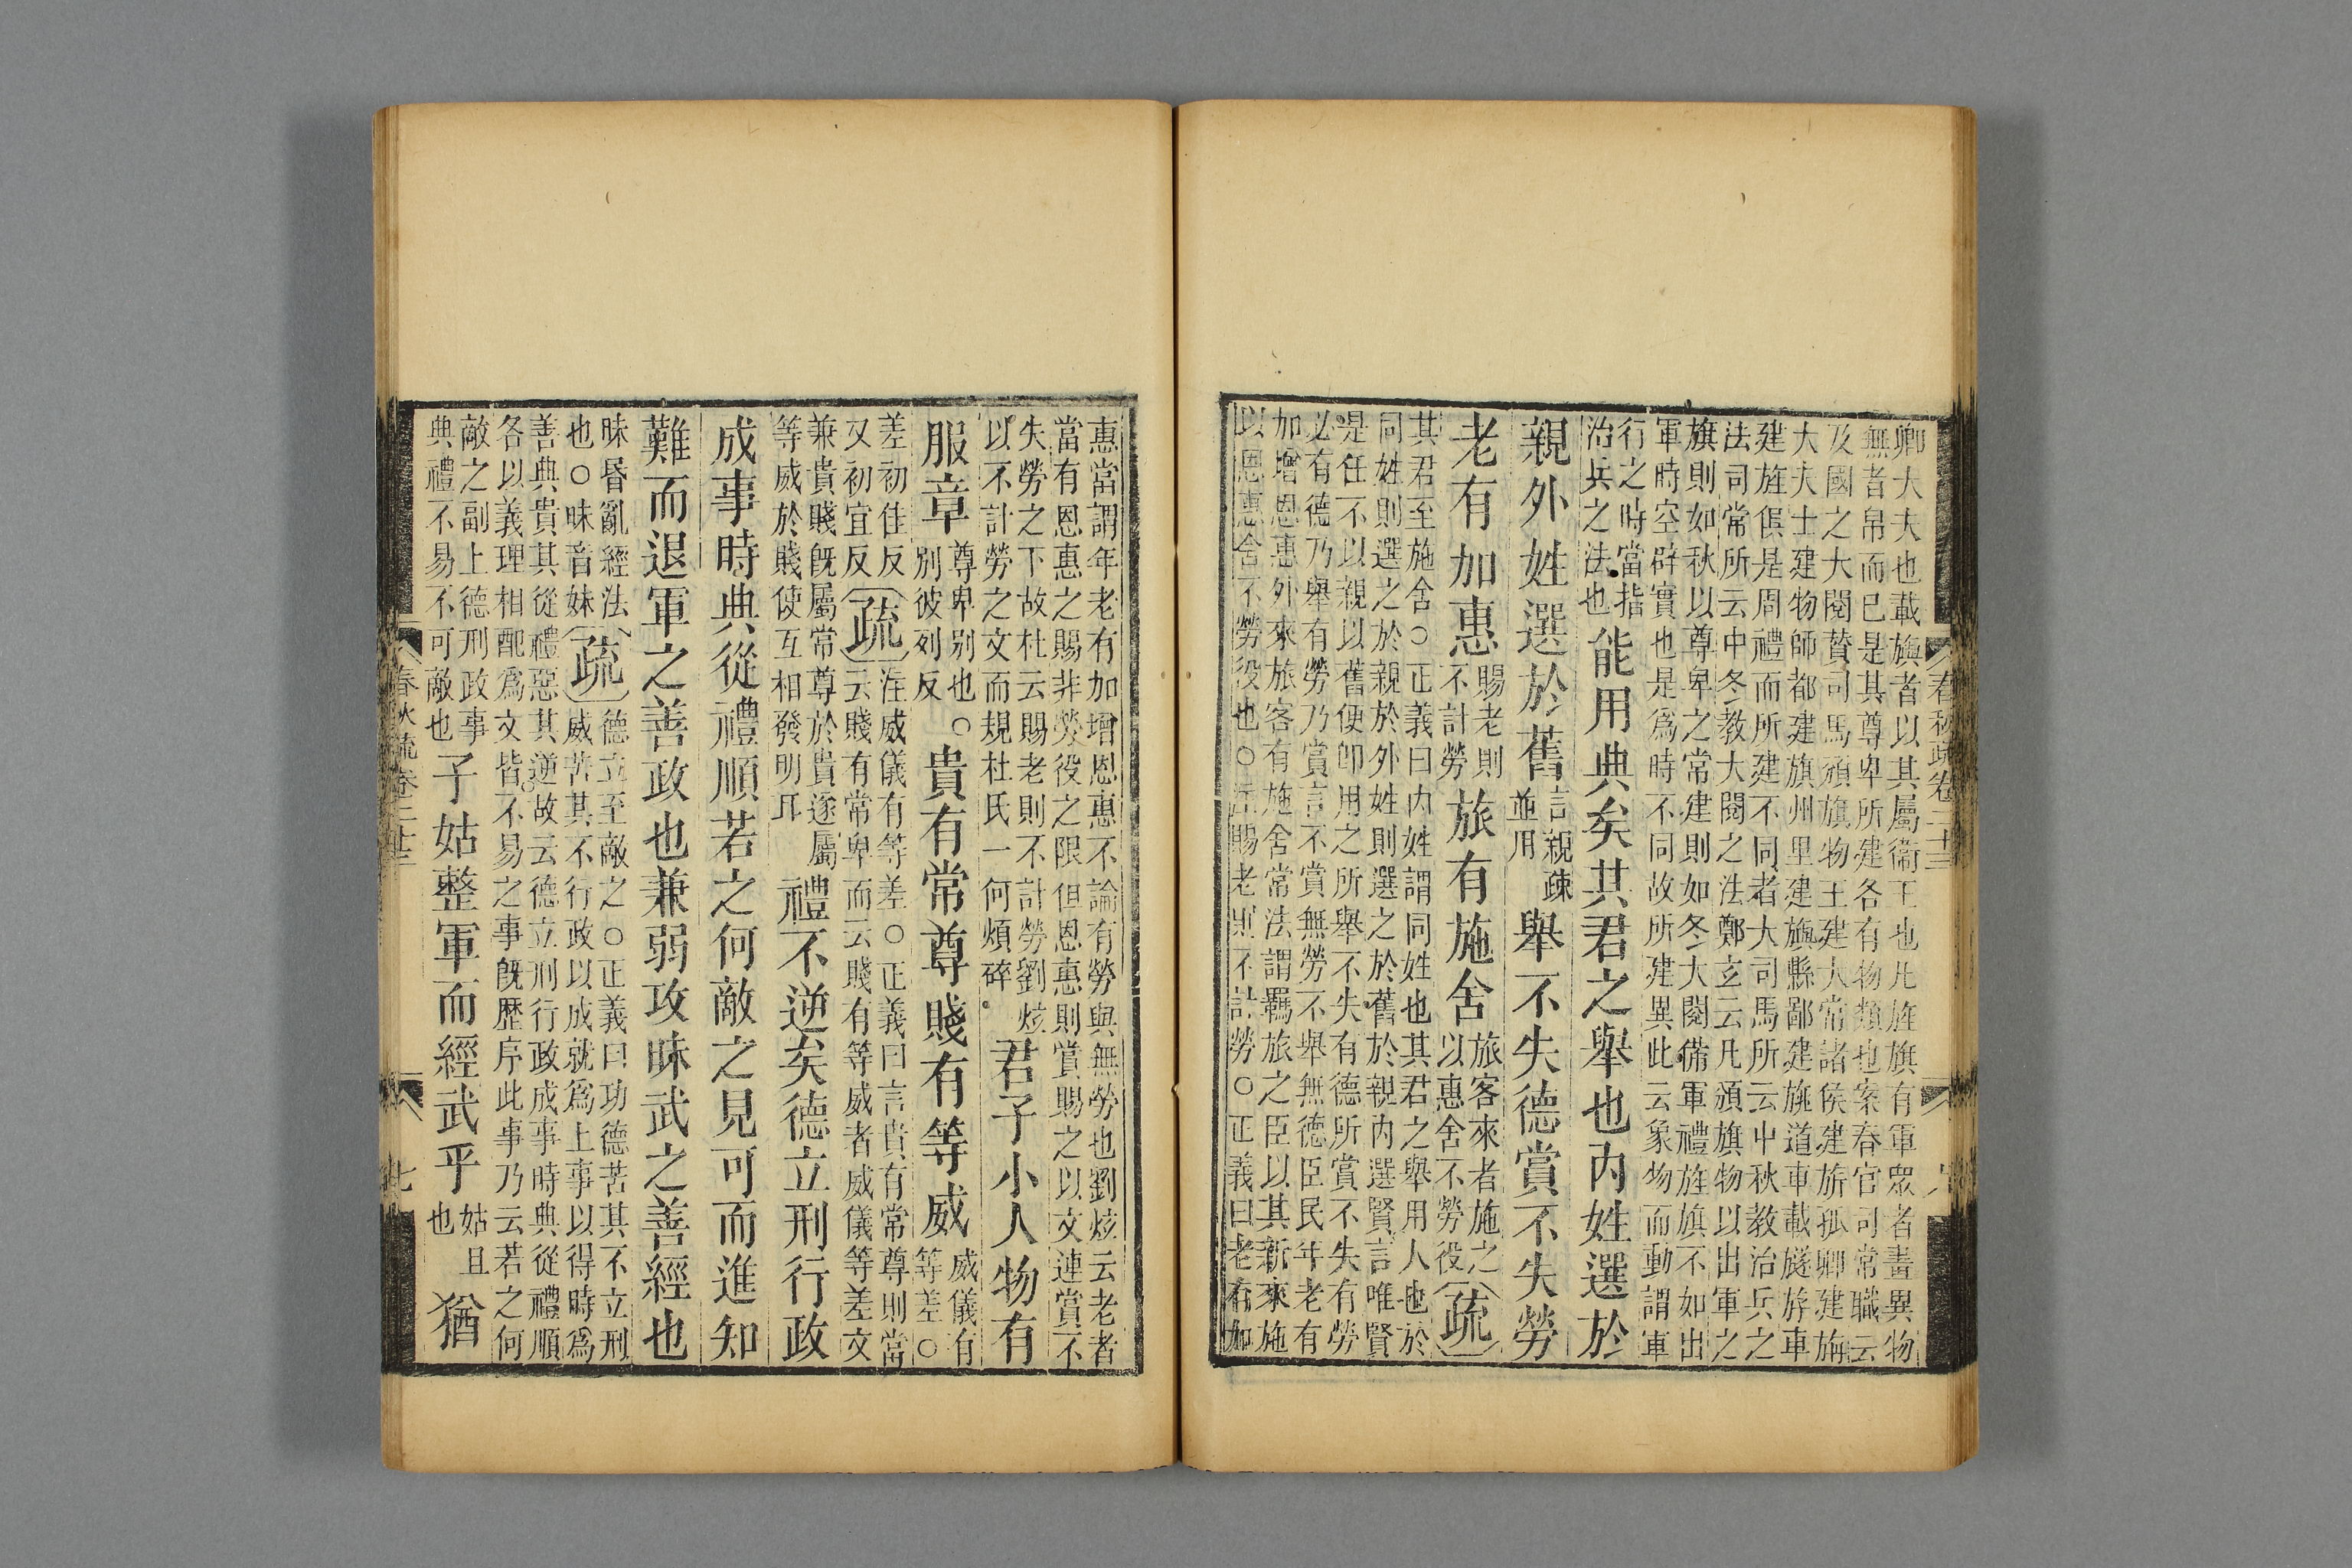 卿大夫也載旟者以其屬衞王也凡旌旗有軍眾者畫異物
無者帛而已是其尊卑所建各有物類也案春官司常職云
及國之大閱贊司馬頒旗物王建大常諸侯建旂孤卿建旜
大夫士建物師都建旗州里建旟縣鄙建旐道車載旞斿車
建旌俱是周禮而所建不同者大司馬所云中秋教治兵之
法司常所云中冬教大閱之法鄭玄云凡頒旗物以出軍之
旗則如秋以尊卑之常建則如冬大閱備軍禮旌旗不如出
軍時空辟實也是爲時不同故所建異此云象物而動謂軍
行之時當指
治兵之法也
能用典矣其君之舉也內姓選於
親外姓選於舊
言親疎
並用
舉不失德賞不失勞
老有加惠
賜老則
不計勞
旅有施舍
旅客來者施之
以惠舍不勞役
疏
其君至施舍○正義曰內姓謂同姓也其君之舉用人也於
同姓則選之於親於外姓則選之於舊於親內選賢言唯賢
是任不以親以舊便卽用之所舉不失有德所賞不失有勞
必有德乃舉有勞乃賞言不賞無勞不舉無德臣民年老有
加增恩惠外來旅客有施舍常法謂羈旅之臣以其新來施
以恩惠舍不勞役也○注賜老則不計勞○正義曰老有加
春秋疏卷二十三
惠當謂年老有加增恩惠不論有勞與無勞也劉炫云老者
當有恩惠之賜非勞役之限但恩惠則賞賜之以文連賞不
失勞之下故杜云賜老則不計勞劉炫
以不計勞之文而規杜氏一何煩碎
君子小人物有
服章
尊卑別也○
別彼列反
貴有常尊賤有等威
威儀有
等差○
差初佳反
又初宜反
疏
注威儀有等差○正義曰言貴有常尊則當
云賤有常卑而云賤有等威者威儀等差文
兼貴賤旣屬常尊於貴遂屬
等威於賤使互相發明耳
禮不逆矣德立刑行政
成事時典從禮順若之何敵之見可而進知
難而退軍之善政也兼弱攻昧武之善經也
昧昏亂經法
也○昧音妹
疏
德立至敵之○正義曰功德苦其不立刑
威苦其不行政以成就爲上事以得時爲
善典貴其從禮惡其逆故云德立刑行政成事時典從禮順
各以義理相配爲文皆不易之事旣歷序此事乃云若之何
敵之副上德刑政事
典禮不易不可敵也
子姑整軍而經武乎
姑且
也
猶
春秋疏卷二十三